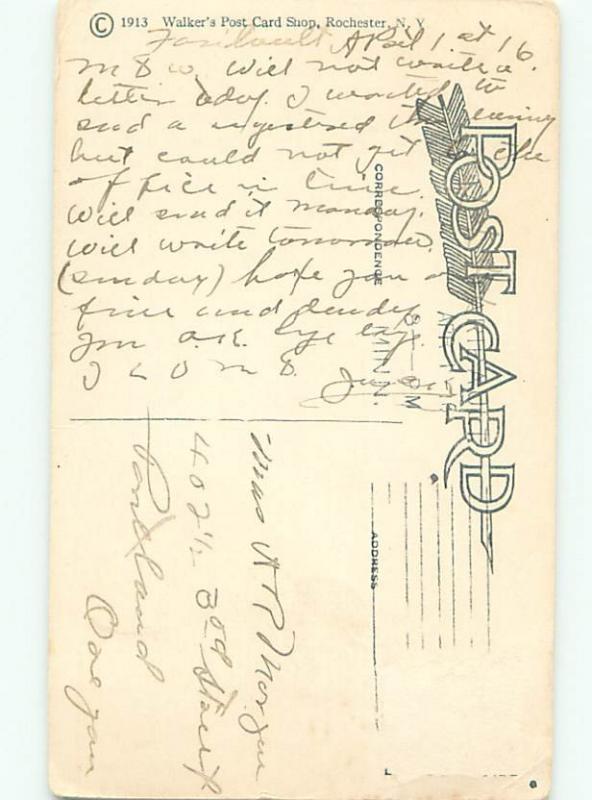 © 1913 Walker's Post Card Shop, Rochester, N. Y.
Faribault April 1. st 16.
M D W. Will not write a
letter oday. I wanted to
send a registered this evening
but could not get to the
office in time.
Will send it Monday.
will write tomorrow.
(sunday) hope you
fine and dandy
Im O.K. bye bye.
I L D M D.
POST CARD
CORRESPONDENCE
MINN.
ADDRESS
Mrs A P Morgan
402½ 3rd Street
Portland
Oregon